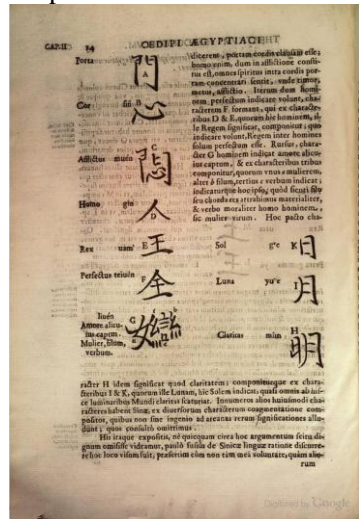 CAP. II 14 OEDIPI ÆGYPTIACI
Porta 門 A
Cor sin B 心
Afflictus muén C 悶
Homo gin 人 D
Rex uam E 王
Perfectus F 全
Amore alicu-
ius captum.
Mulier, filum,
verbum. G
dicerent, portam cordis clausam esse;
homo enim, dum in afflictione consti-
tus est, omnes spiritus intra cordis por-
tam concentrari sentit, vnde timor,
metus, afflictio. Iterum dum homi-
nem perfectum indicare volunt, cha-
racterem F formant, qui ex characte-
ribus D & E, quorum hic hominem, il-
le Regem significat, componitur; quo
indicare volunt, Regem inter homines
solum perfectum esse. Rursus, chara-
cter G hominem indicat amore alicu-
ius captum, & ex characteribus tribus
componitur, quorum vnus mulierem,
alter filum, tertius verbum indicat;
indicaturque hoc ipso, quod
seu chorda ex attrahimus materialiter,
& verbo moraliter homo hominem,
sic mulier virum. Hoc pacto cha-
Sol g'e K 日
Luna yu'e I 月
Claritas mim H 明
racter H idem significat quod claritatem; componiturque ex chara-
cteribus I & K, quorum ille Lunam, hic Solem indicat; quasi omnis ab hi-
sce luminaribus Mundi claritas scaturiat. Innumeros alios huiusmodi cha-
racteres habent Sinæ, ex diuersorum characterum coagmentatione com-
positos, quibus non sine ingenio ad arcanas rerum significationes allu-
dunt; quos consultò omittimus.
His itaque expositis, nè quicquam circa hoc argumentum scitu di-
gnum omisisse videamur, paulò fusius de Sinicæ linguæ ratione disserere
hoc loco visum fuit, præsertim cùm non tàm mea voluntate, quàm alio-
rum
Digitized by Google